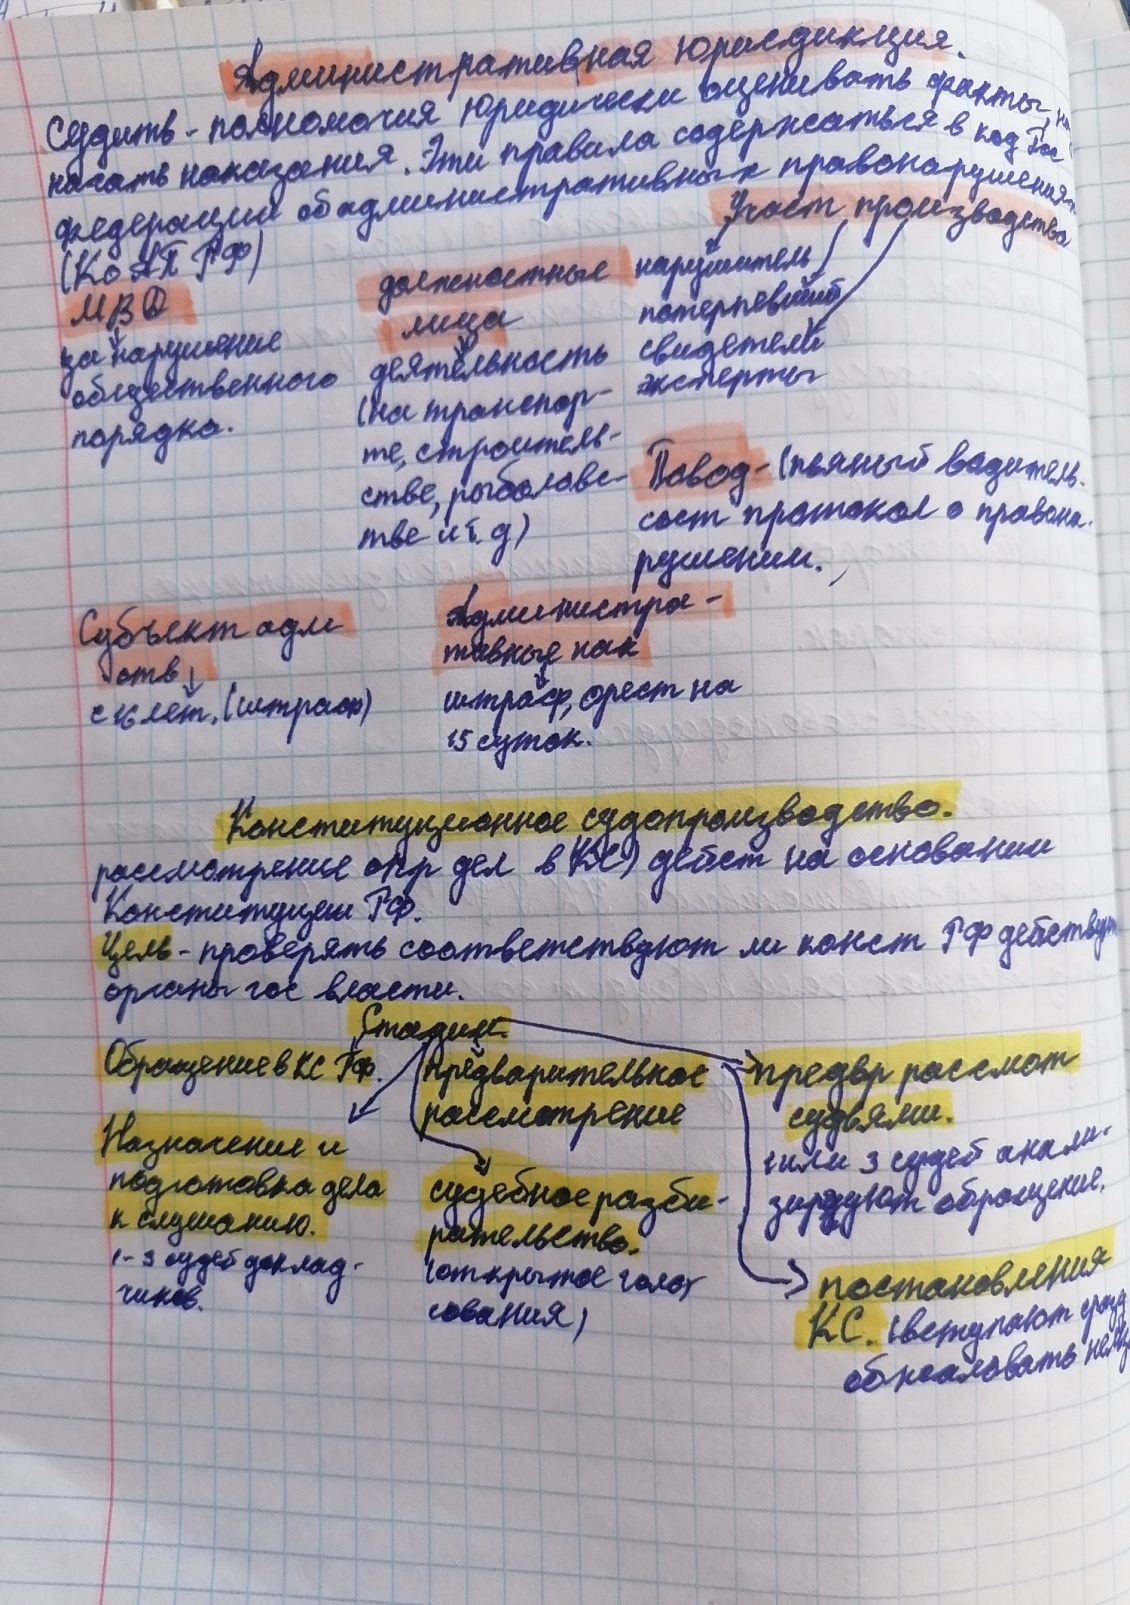 Административная юрисдикция.
Судить - полномочия юридически оценивать факты, на
начать наказания. Эти правила содержаться в код Рос
федерации об административных правонарушениях
(КоАП РФ)
Участ производства
нарушитель
потерпевший
свидетели
эксперты
МВД
за нарушение
общественного
порядка.
должностные
лица
деятельность
(на транспор-
те, строитель-
стве, рыболовс-
тве и т.д)
Повод - (пьяный водитель.
сост протокол о правона.
рушении.,
Субъект адм
отв
с 16 лет, (штраф)
Администра-
тивные нак
штраф, арест на
15 суток.
Конституционное судопроизводство.
рассмотрение опр дел в КС) дейст на основании
Конституции РФ.
Цель - проверять соответствуют ли конст РФ действуют
органы гос власти.
Стадии.
Обращение в КС РФ.
Предварительное
рассмотрение
предвр рассмот
судьями.
1 или 3 судей анали.
зируют обращение.
Назначение и
подготовка дела
к слушанию.
1-3 судей доклад-
чиков.
судебное разби-
рательство.
(открытое голо,
сования)
постановления
КС. (вступают сразу
обжаловать нельз